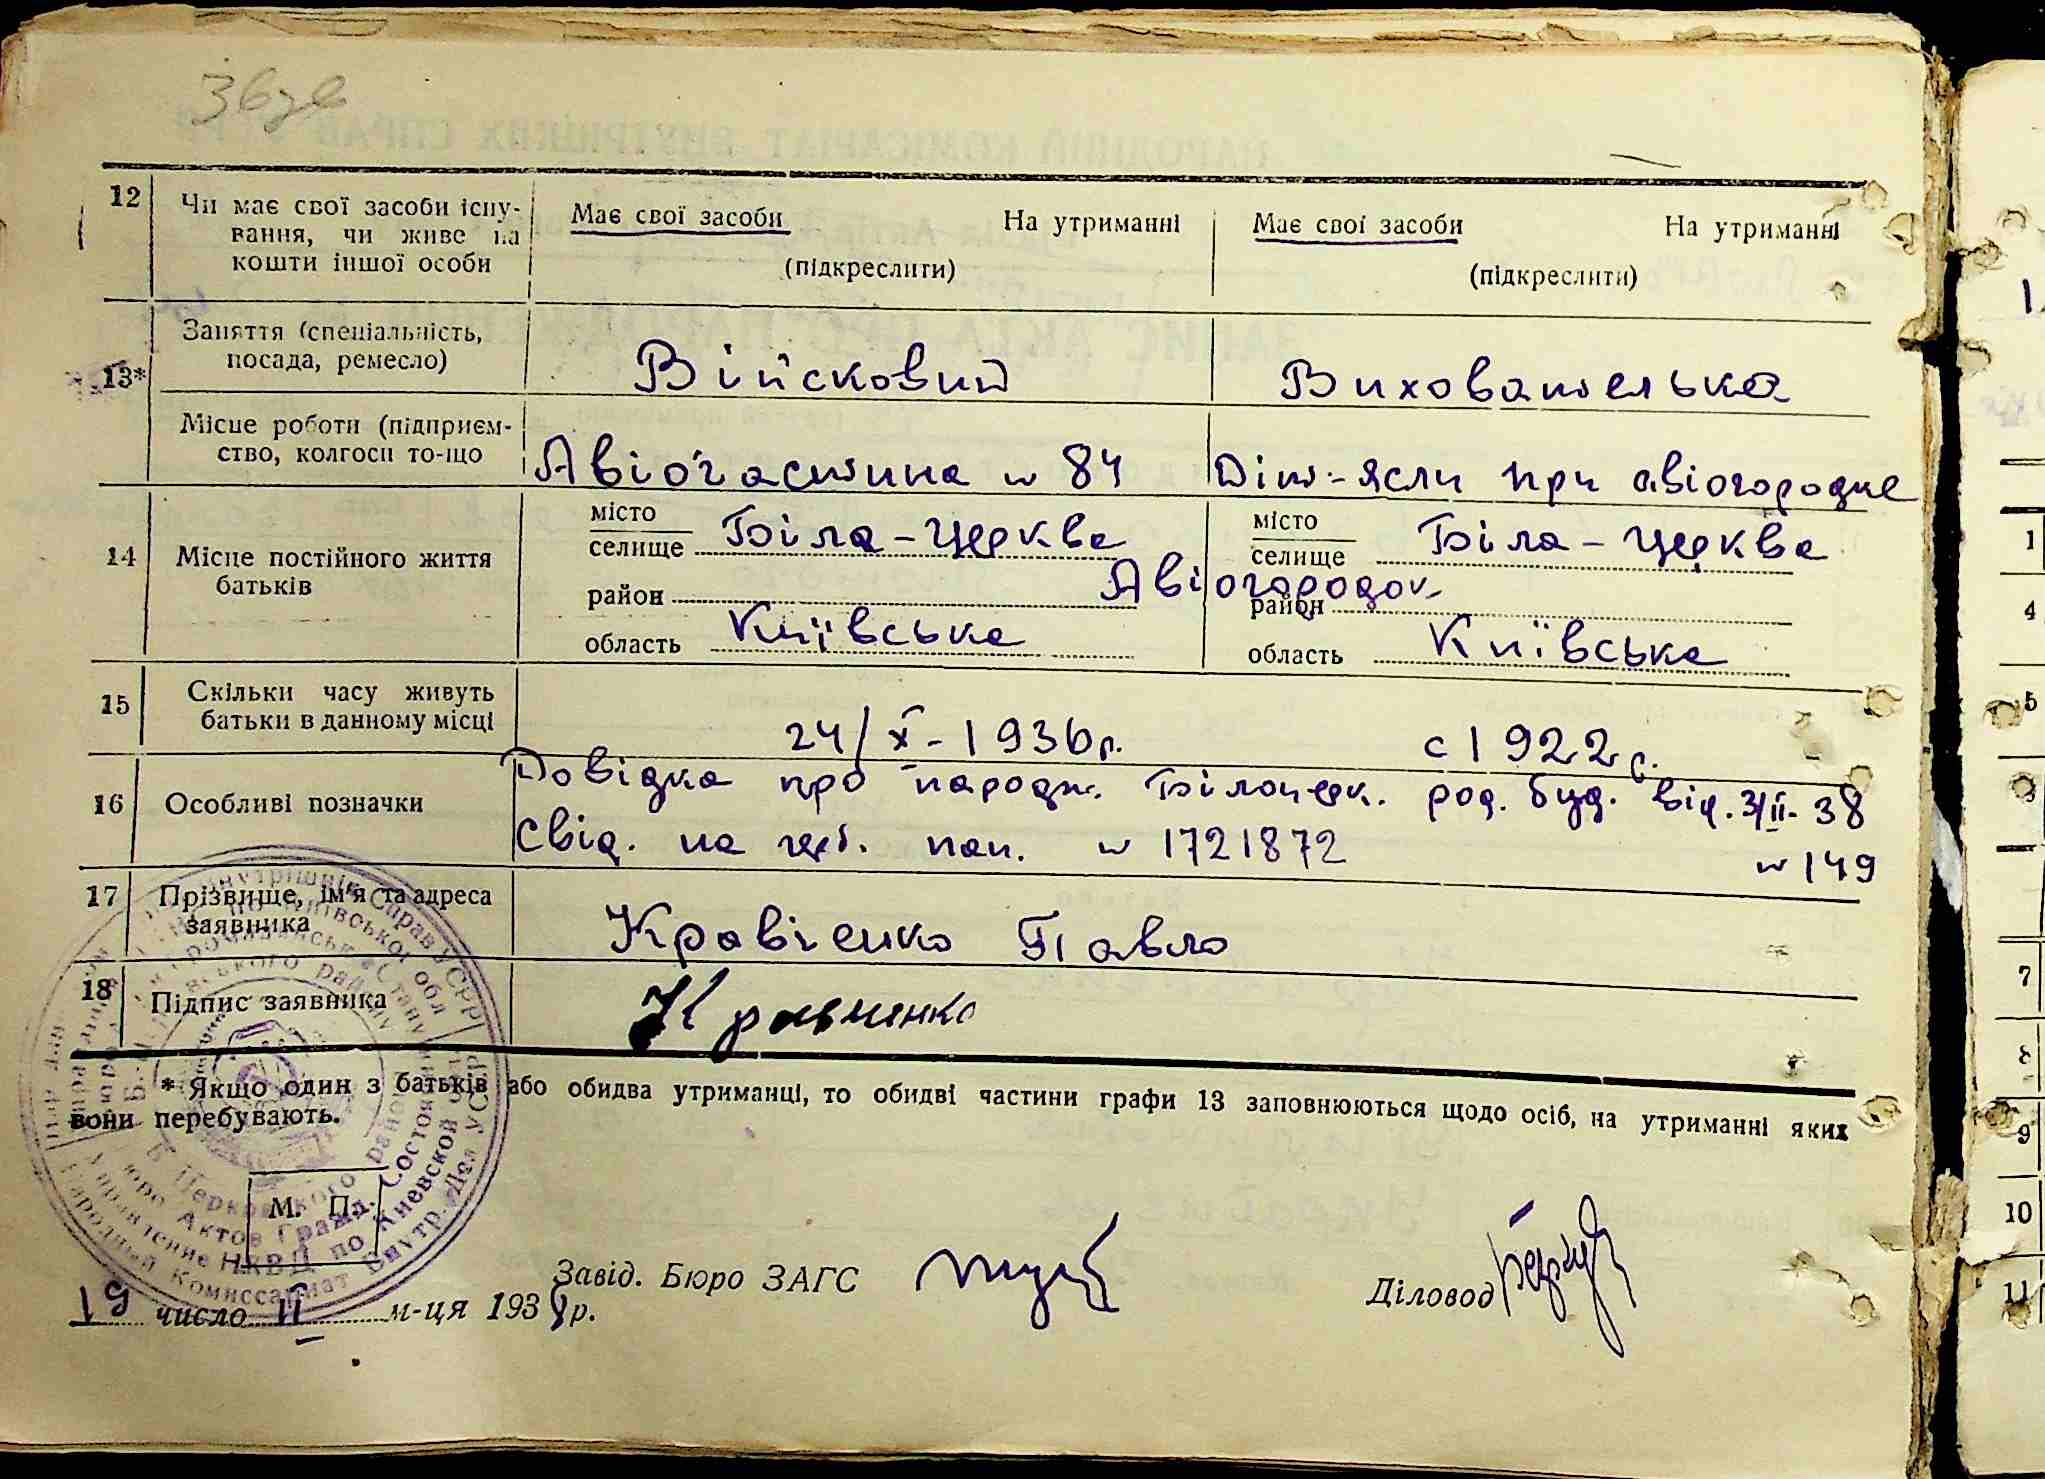 12
Чи має свої засоби існу-
вання, чи живе на
кошти іншої особи
Має свої засоби На утриманні
(підкреслити)
Має свої засоби На утриманні
(підкреслити)
13*
Заняття (спеціальність,
посада, ремесло)
Військовий
Вихователька
Місце роботи (підприєм-
ство, колгосп то-що
Авіочастина № 84
Діт-ясли при авіогородке
14
Місце постійного життя
батьків
місто
селище Біла-Церква
район
область Київська
Авіогородок
місто
селище Біла-Церква
район
область Київська
15
Скільки часу живуть
батьки в данному місці
24/X-1936р.
с 1922 р.
16
Особливі позначки
Довідка про народж. Білоцерк. род. буд. від. 3/II-38
Свід. на шлб. пап. № 1721872 № 149
17
Прізвище, ім'я та адреса
заявника
Кравченко Павло
18
Підпис заявника
Кравченко
* Якщо один з батьків або обидва утриманці, то обидві частини графи 13 заповнюються щодо осіб, на утриманні яких
вони перебувають.
М. П.
Бюро Актов Гражд. Состояния
Управление НКВД по Киевской обл
Народный Комиссариат Внутр. Дел УССР
Завід. Бюро ЗАГС
Діловод
19 число II м-ця 1938р.
1
4
5
7
8
9
10
11